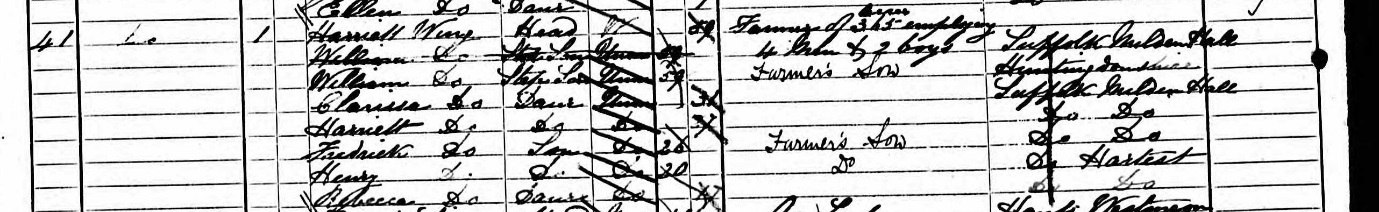 Ellen Do Daur
41 Do 1 Harriett Wing Head W 59 Farmer of 365 acres employing Suffolk Mildenhall
William Do Step Son Unm 4 Men & 2 boys Huntingdonshire
William Do Step Son Unm Farmer's Son Suffolk Mildenhall
Clarissa Do Daur Unm 31 Do Do
Harriett Do Do Do Do Do
Fredrick Do Son Do 26 Farmer's Son Do Hartest
Henry Do Do Do 20 Do Do Do
Rebecca Do Daur Do 17 Hants